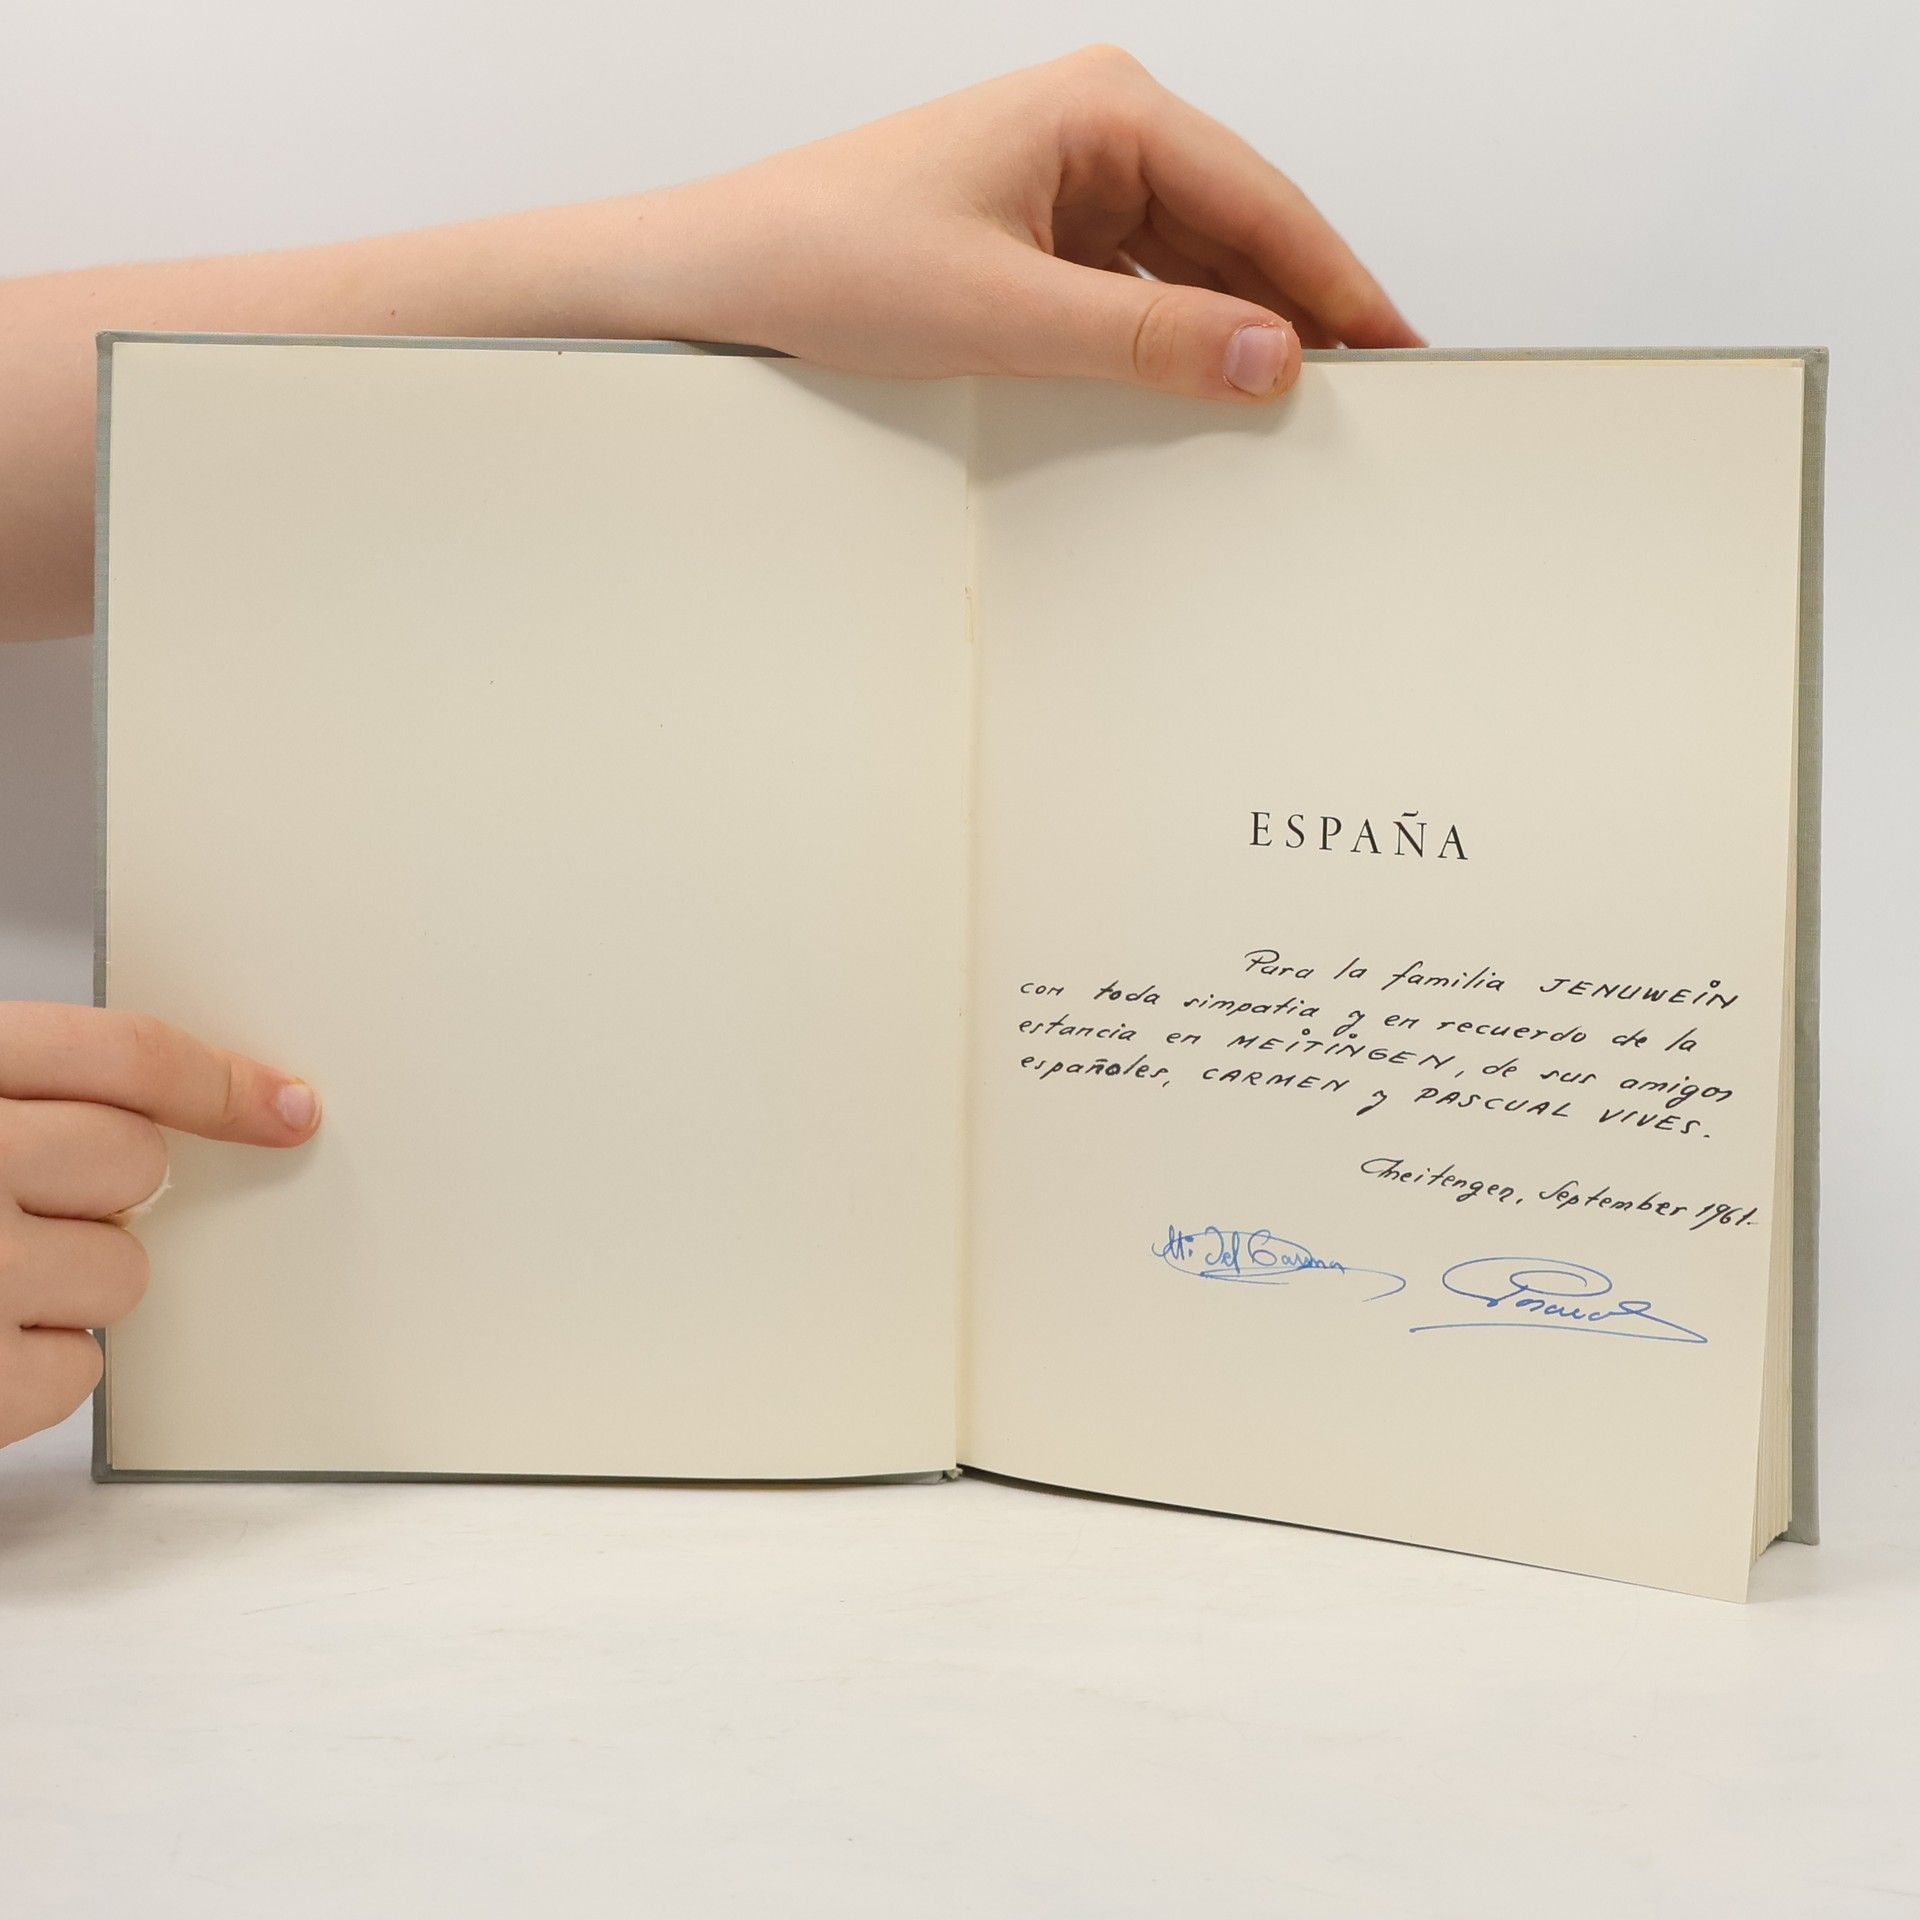 ESPAÑA
Para la familia JENUWEIN
con toda simpatia y en recuerdo de la
estancia en MEITINGEN, de sus amigos
españoles, CARMEN y PASCUAL VIVES.
Meitengen, September 1961-
Mª Del Carmen
Pascual